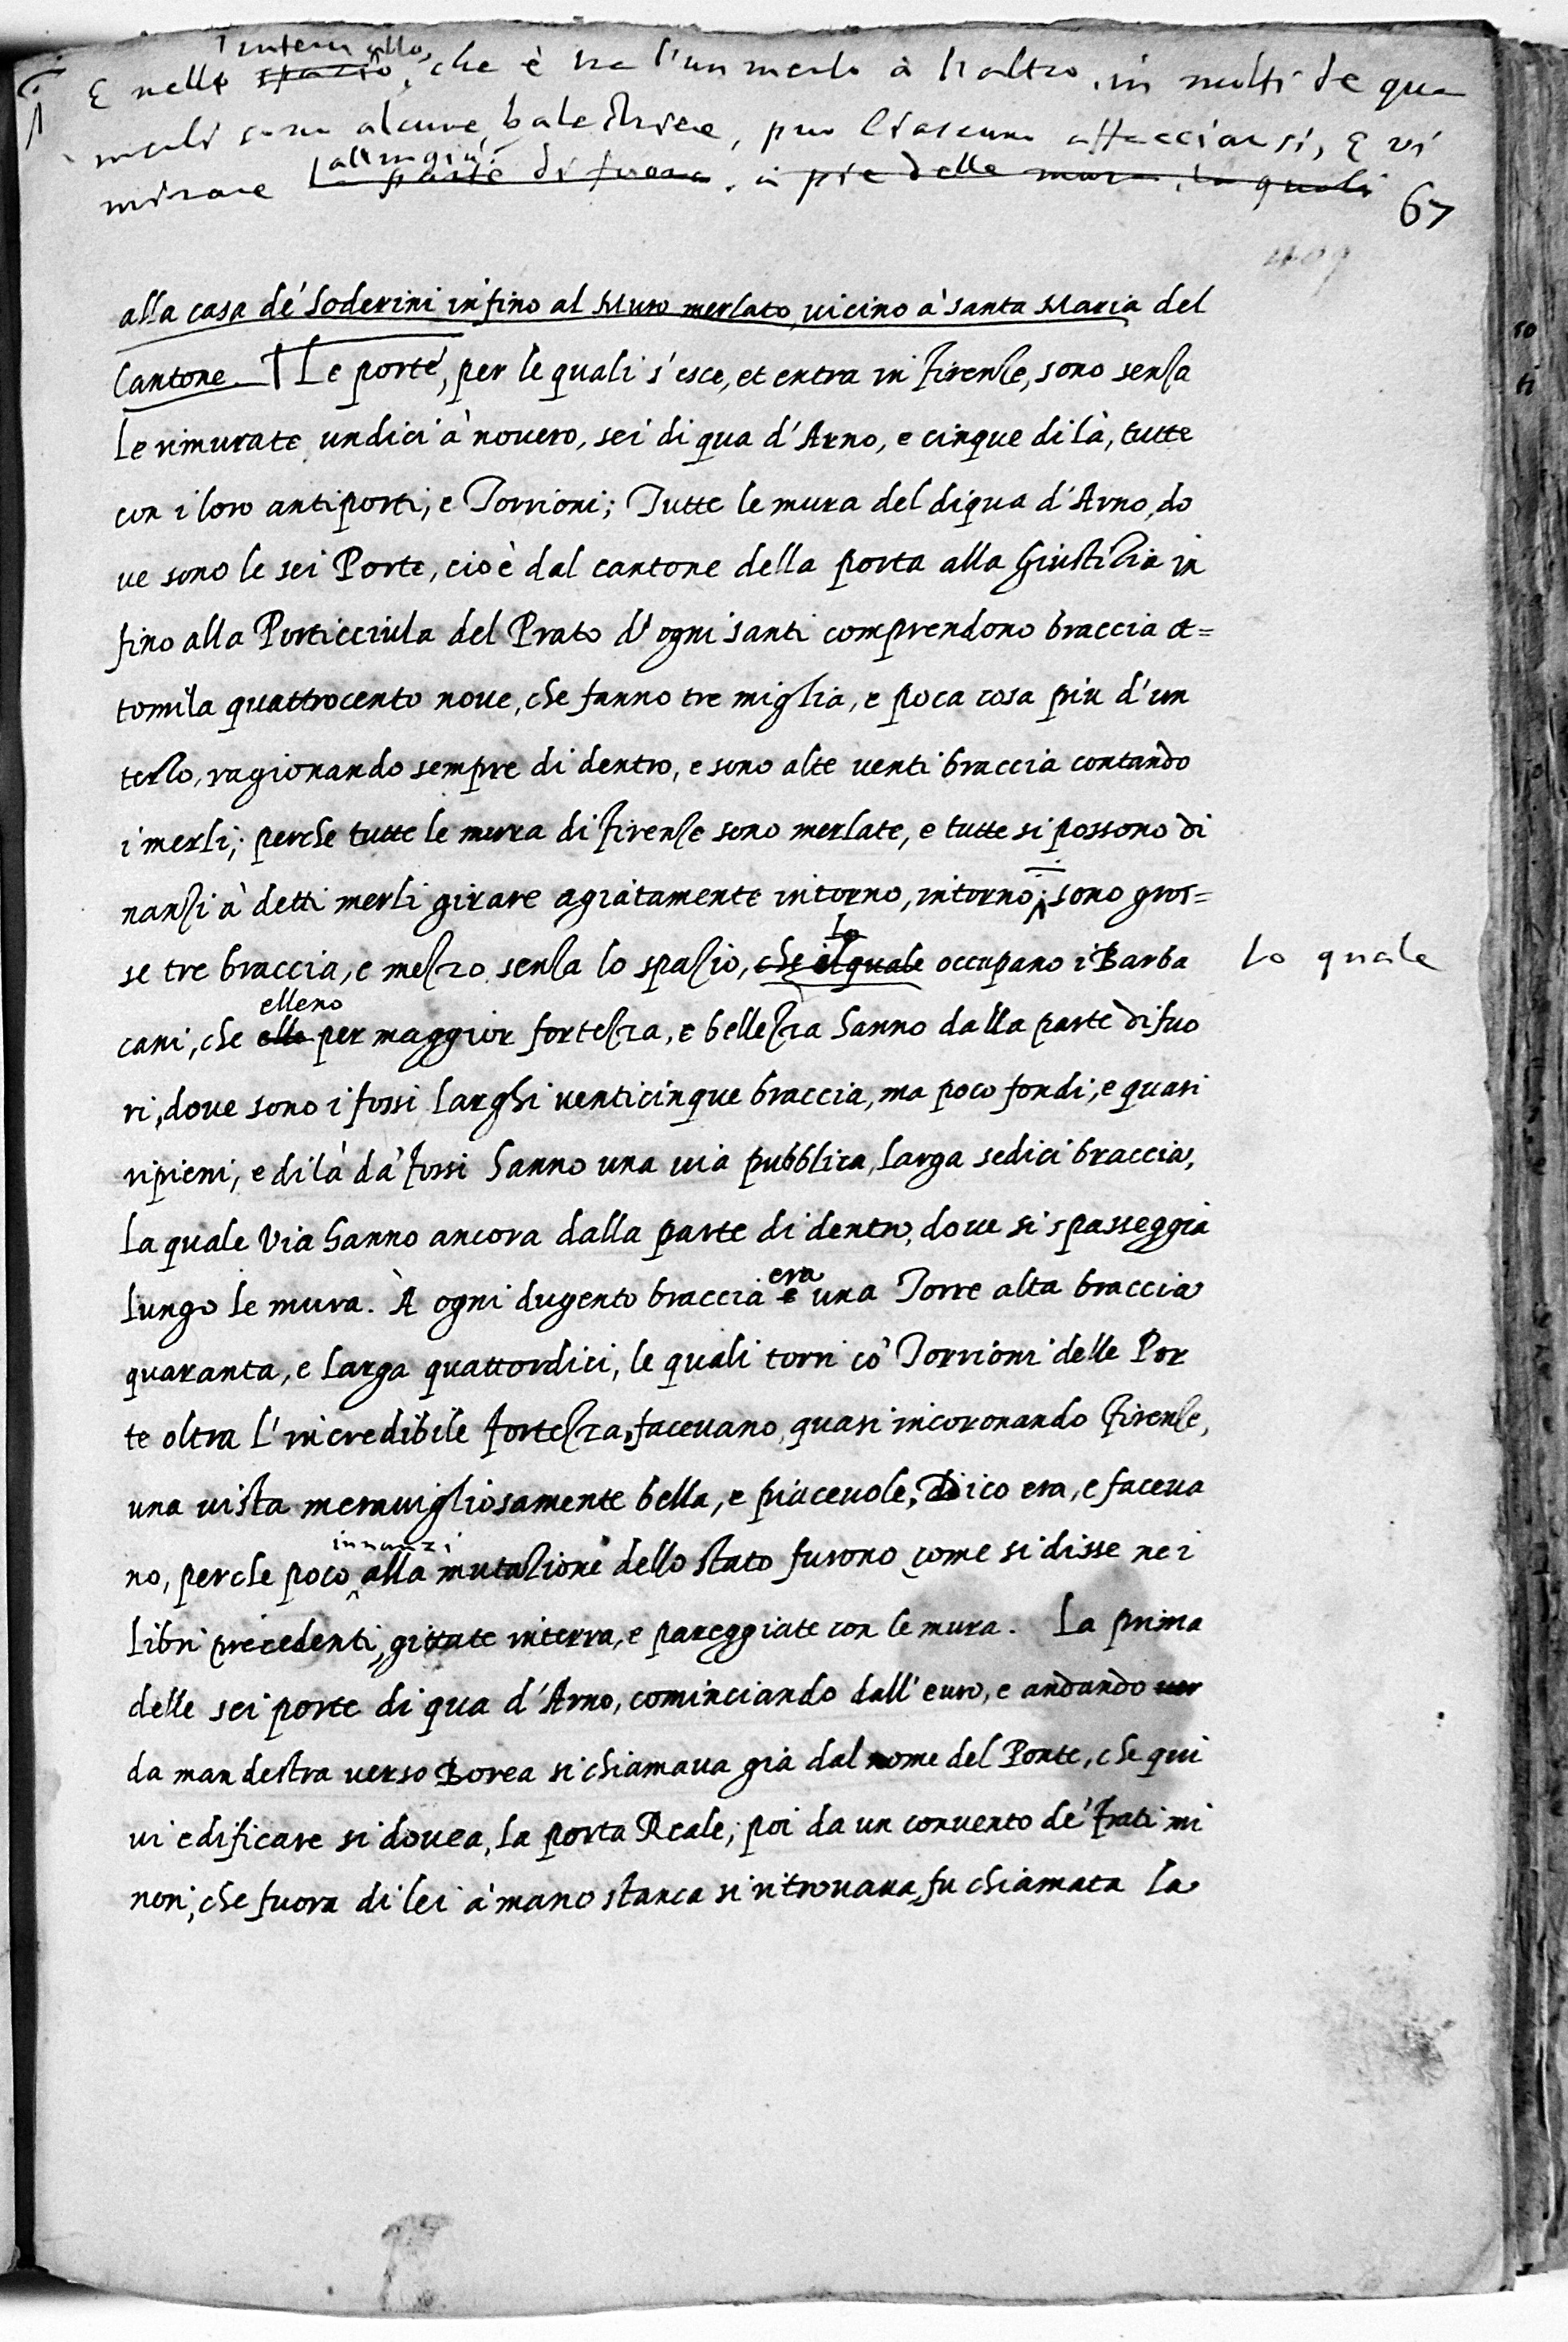 intervallo
E nello spazio, che è tra l'un merlo à l'altro, in molti de qua
merli sono alcune balestriere, puo ciascuno affacciarsi, e vi
all'ingiù
mirare la parte di fuora. in pie delle mura, la quali
67
alla casa de' Soderini infino al Muro merlato, uicino à Santa Maria del
Cantone. Le porte, per le quali s'esce, et entra in Firenze, sono senza
le rimurate undici à nouero, sei di qua d'Arno, e cinque di là, tutte
con i loro antiporti, e Torrioni; Tutte le mura del diqua d'Arno, do
ue sono le sei Porte, cioè dal cantone della porta alla Giustizia in
fino alla Porticciula del Prato d'ogni santi comprendono braccia ot=
tomila quattrocento noue, che fanno tre miglia, e poca cosa più d'un
terzo, ragionando sempre di dentro, e sono alte uenti braccia contando
i merli; perche tutte le mura di Firenze sono merlate, e tutte si possono di
nanzi à detti merli girare agiatamente intorno, intorno; sono gros=
lo
se tre braccia, e mezzo senza lo spazio, che il quale occupano i Barba
lo quale
elleno
cani, che elle per maggior fortezza, e bellezza hanno dalla parte di fuo
ri, doue sono i fossi larghi uenticinque braccia, ma poco fondi, e quasi
ripieni, e di là da' fossi hanno una uia pubblica, larga sedici braccia,
la quale Via hanno ancora dalla parte di dentro, doue si spasseggia
era
lungo le mura. À ogni dugento braccia è una Torre alta braccia
quaranta, e larga quattordici, le quali torri co' Torrioni delle Por
te oltra l'incredibile fortezza, faceuano, quasi incoronando Firenze,
una uista merauigliosamente bella, e piaceuole, Dico era, e faceua
innanzi
no, perche poco alla mutazione dello stato furono come si disse nei
libri precedenti, gittate in terra, e pareggiate con le mura. La prima
delle sei porte di qua d'Arno, cominciando dall'euro, e andando uer
da man destra uerso Borea si chiamaua già dal nome del Ponte, che qui
ui edificare si douea, la porta Reale, poi da un conuento de' frati mi
nori, che fuora di lei à mano stanca si ritrouaua, fu chiamata la